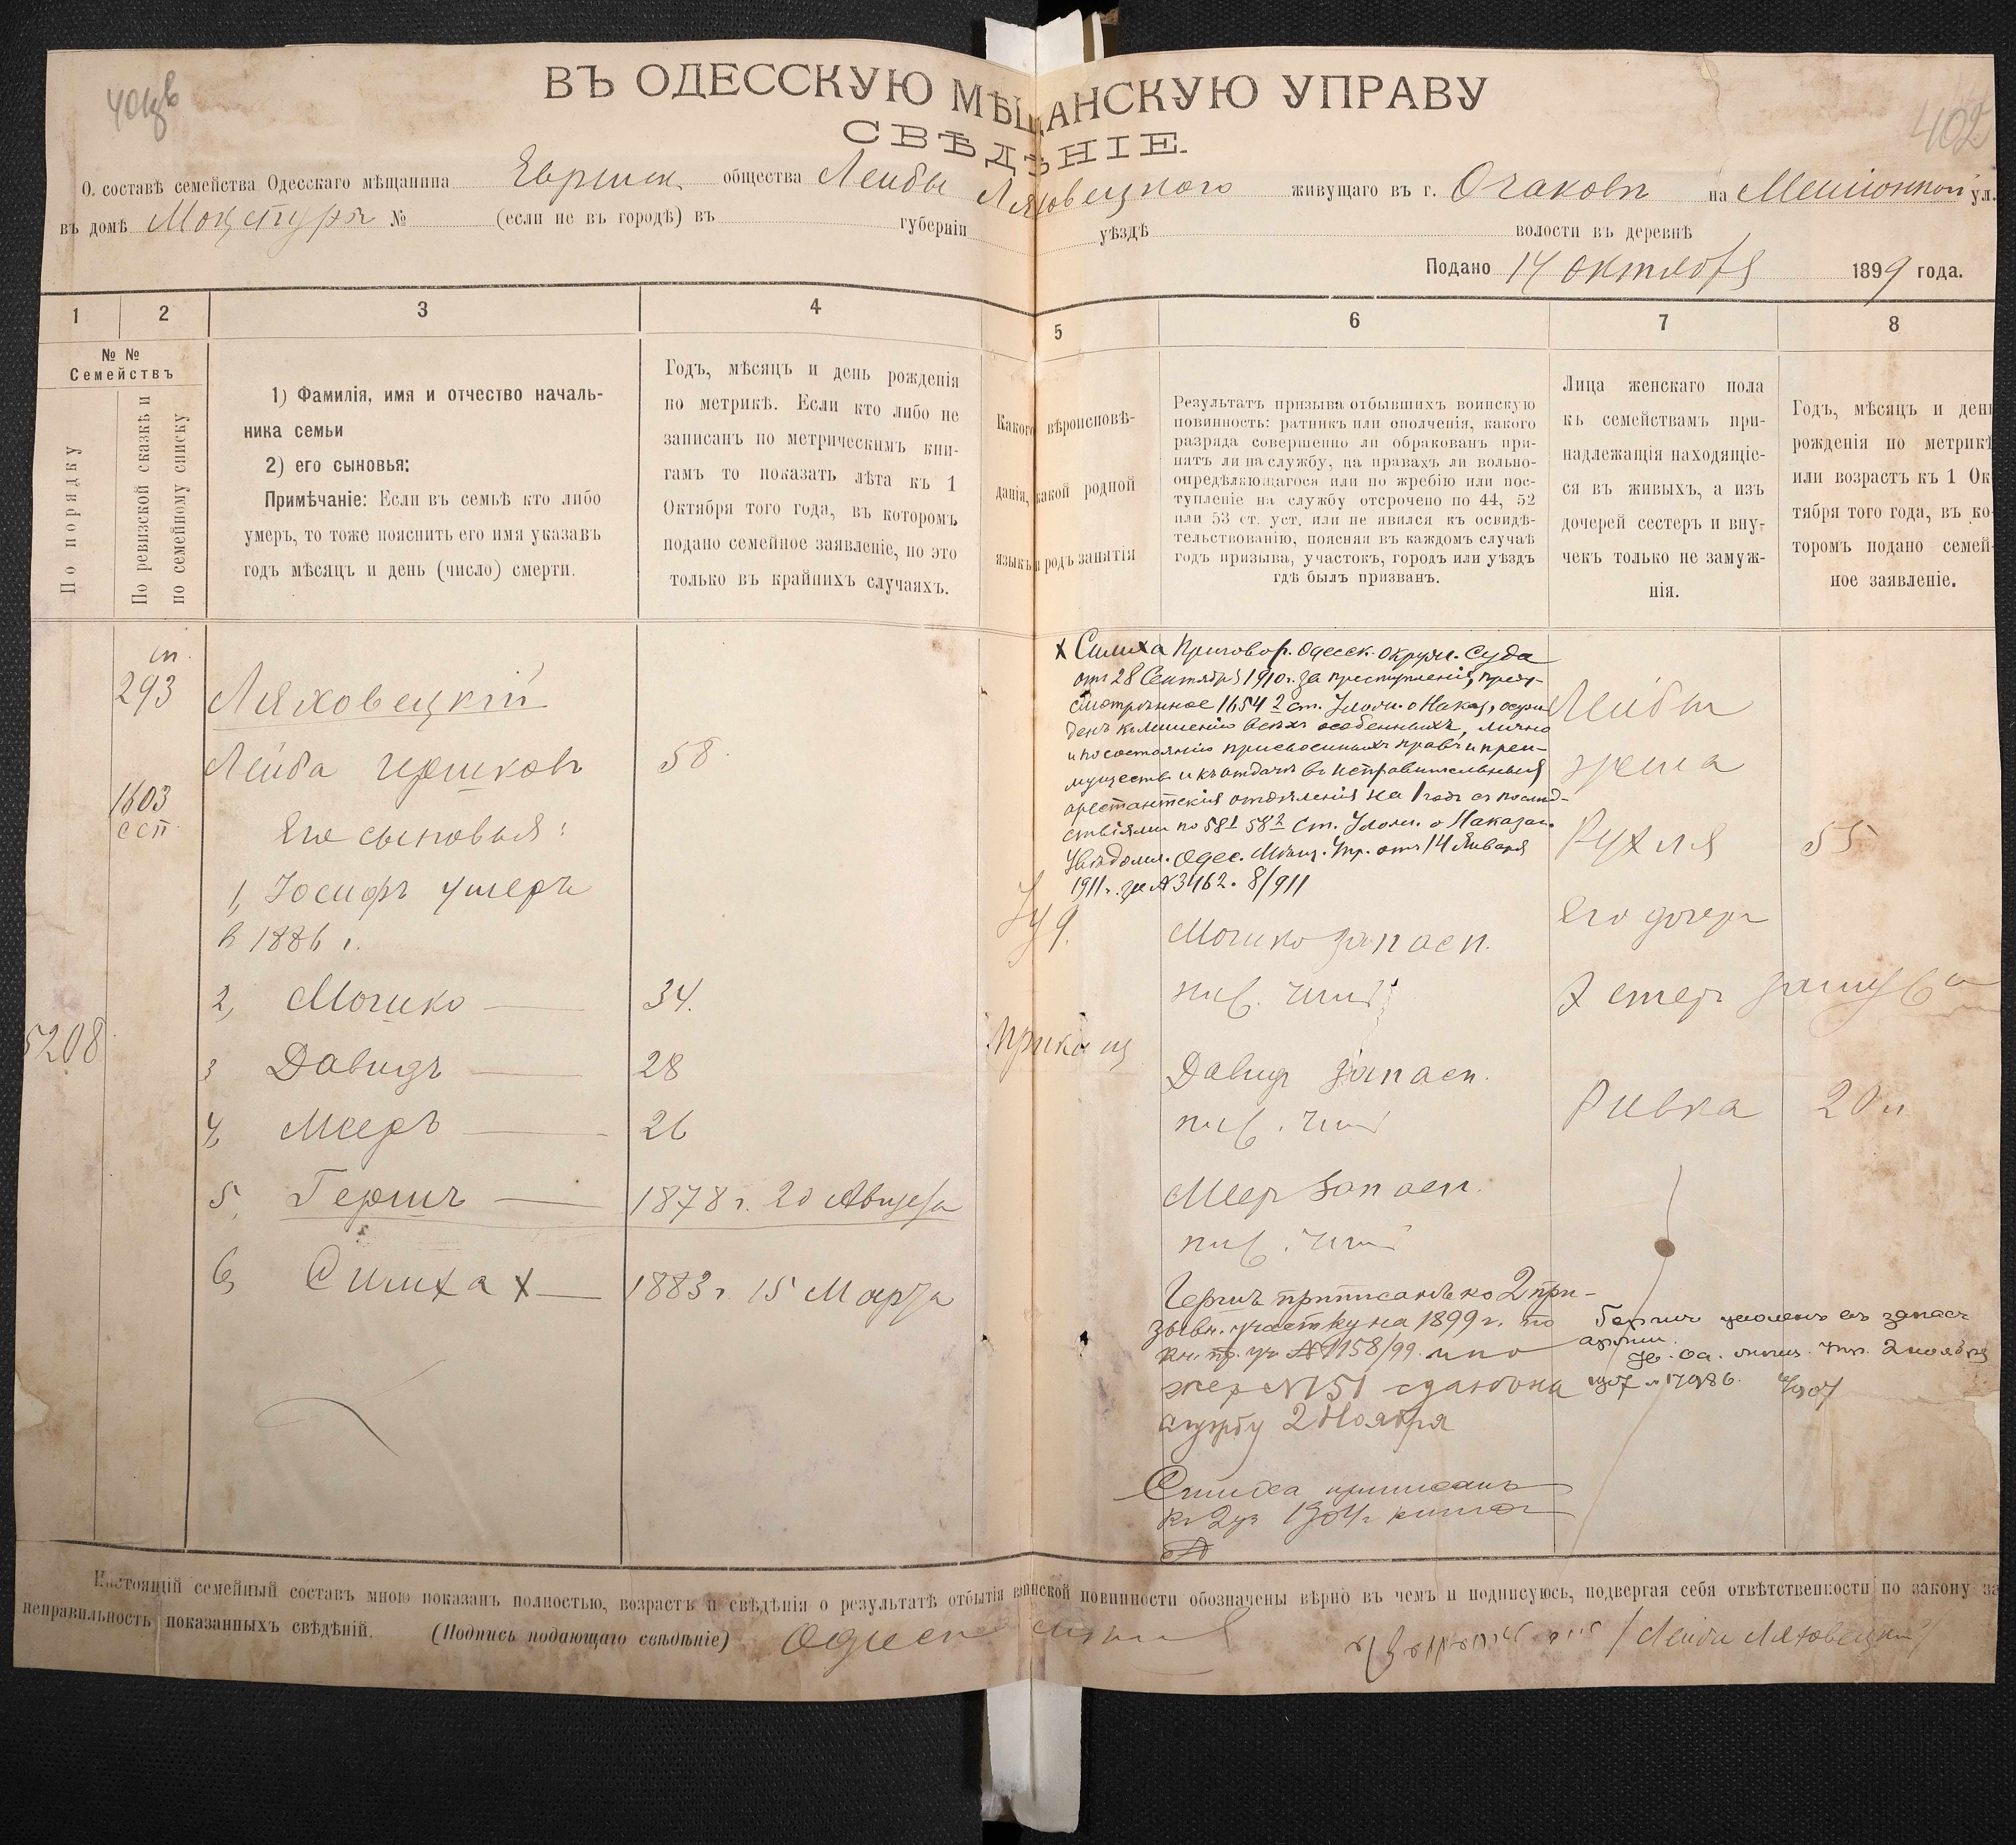 402
ВЪ ОДЕССКУЮ МѢЩАНСКУЮ УПРАВУ
СВѢДѢНІЕ.
О составѣ семейства Одесскаго мѣщанина общества Лейбы Ляховецкаго живущаго въ г. Очаковѣ на ул.
въ домѣ № (если не въ городѣ) въ губерніи уѣздѣ волости въ деревнѣ
Подано 14 октября 1899 года.
1 2 3 4 5 6 7 8
№ №
Семействъ
По порядку
По ревизской сказкѣ и
по семейному списку
1) Фамилія, имя и отчество началь-
ника семьи
2) его сыновья:
Примѣчаніе: Если въ семьѣ кто либо
умеръ, то тоже пояснить его имя указавъ
годъ мѣсяцъ и день (число) смерти.
Годъ, мѣсяцъ и день рожденія
по метрикѣ. Если кто либо не
записанъ по метрическимъ кни-
гамъ то показать лѣта къ 1
Октября того года, въ которомъ
подано семейное заявленіе, но это
только въ крайнихъ случаяхъ.
Какого вѣроисповѣ-
данія, какой родной
языкъ и родъ занятія
Результатъ призыва отбывшихъ воинскую
повинность: ратникъ или ополченія, какого
разряда совершенно ли обракованъ при-
нятъ ли на службу, на правахъ ли вольно-
опредѣляющагося или по жребію или пос-
тупленіе на службу отсрочено по 44, 52
или 53 ст. уст. или не явился къ освидѣ-
тельствованію, поясняя въ каждомъ случаѣ
годъ призыва, участокъ, городъ или уѣздъ
гдѣ былъ призванъ.
Лица женскаго пола
къ семействамъ при-
надлежащія находящіе-
ся въ живыхъ, а изъ
дочерей сестеръ и вну-
чекъ только не замуж-
нія.
Годъ, мѣсяцъ и день
рожденія по метрикѣ
или возрастъ къ 1 Ок-
тября того года, въ ко-
торомъ подано семей-
ное заявленіе.
293
1603
5208
Ляховецкій
Лейба Гершковъ 58
Его сыновья:
1, Іосифъ умеръ
в 1886 г.
2, Мошко — 34.
3 Давидъ — 28
4, Мееръ — 26
5, Гершъ — 1878 г. 20 Августа
6, Симха х — 1883 г. 15 Марта
Іуд.
х Симха Приговор. Одесск. Окружн. Суда
отъ 28 Сентября 1910 г. за преступленіе, преду-
смотрѣнное 1654 2 ст. Улож. о Наказ, осуж-
денъ къ лишенію всѣхъ особенныхъ, лично
и по состоянію присвоенныхъ правъ и преи-
муществъ и къ отдачѣ въ исправительныя
арестантскія отдѣленія на 1 годъ съ послѣд-
ствіями по 58 1 58 2 ст. Улож. о Наказан.
Увѣдомл. Одес. Мѣщ. Упр. отъ 14 Января
1911 г. за № 3462. 8/911
Мошко запасн.
ниж. чин
Давид запасн.
ниж. чин
Меер запасн.
ниж. чин
Гершъ приписанъ ко 2 при-
зывн. участку на 1899 г. по
1158/99.
жер № 151 сдан на
службу 2 Ноября
Симха приписанъ
1904 г.
Лейбы
жена
Рухля 55
Его дочери
Эстер замужем
Ривка 20 л
Гершъ уволенъ въ запасъ
арміи.
2 ноября
1907 № 17986.
Настоящій семейный составъ мною показанъ полностью, возрастъ и свѣдѣнія о результатѣ отбытія воинской повинности обозначены вѣрно въ чемъ и подписуюсь, подвергая себя отвѣтственности по закону за
неправильность показанныхъ свѣдѣній. (Подпись подающаго свѣдѣніе) /Лейба Ляховецкій/